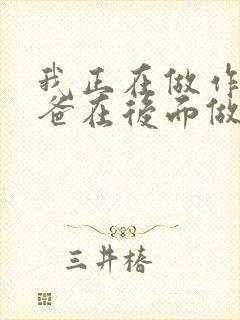 我正在做作
爸在後而做
三井椿